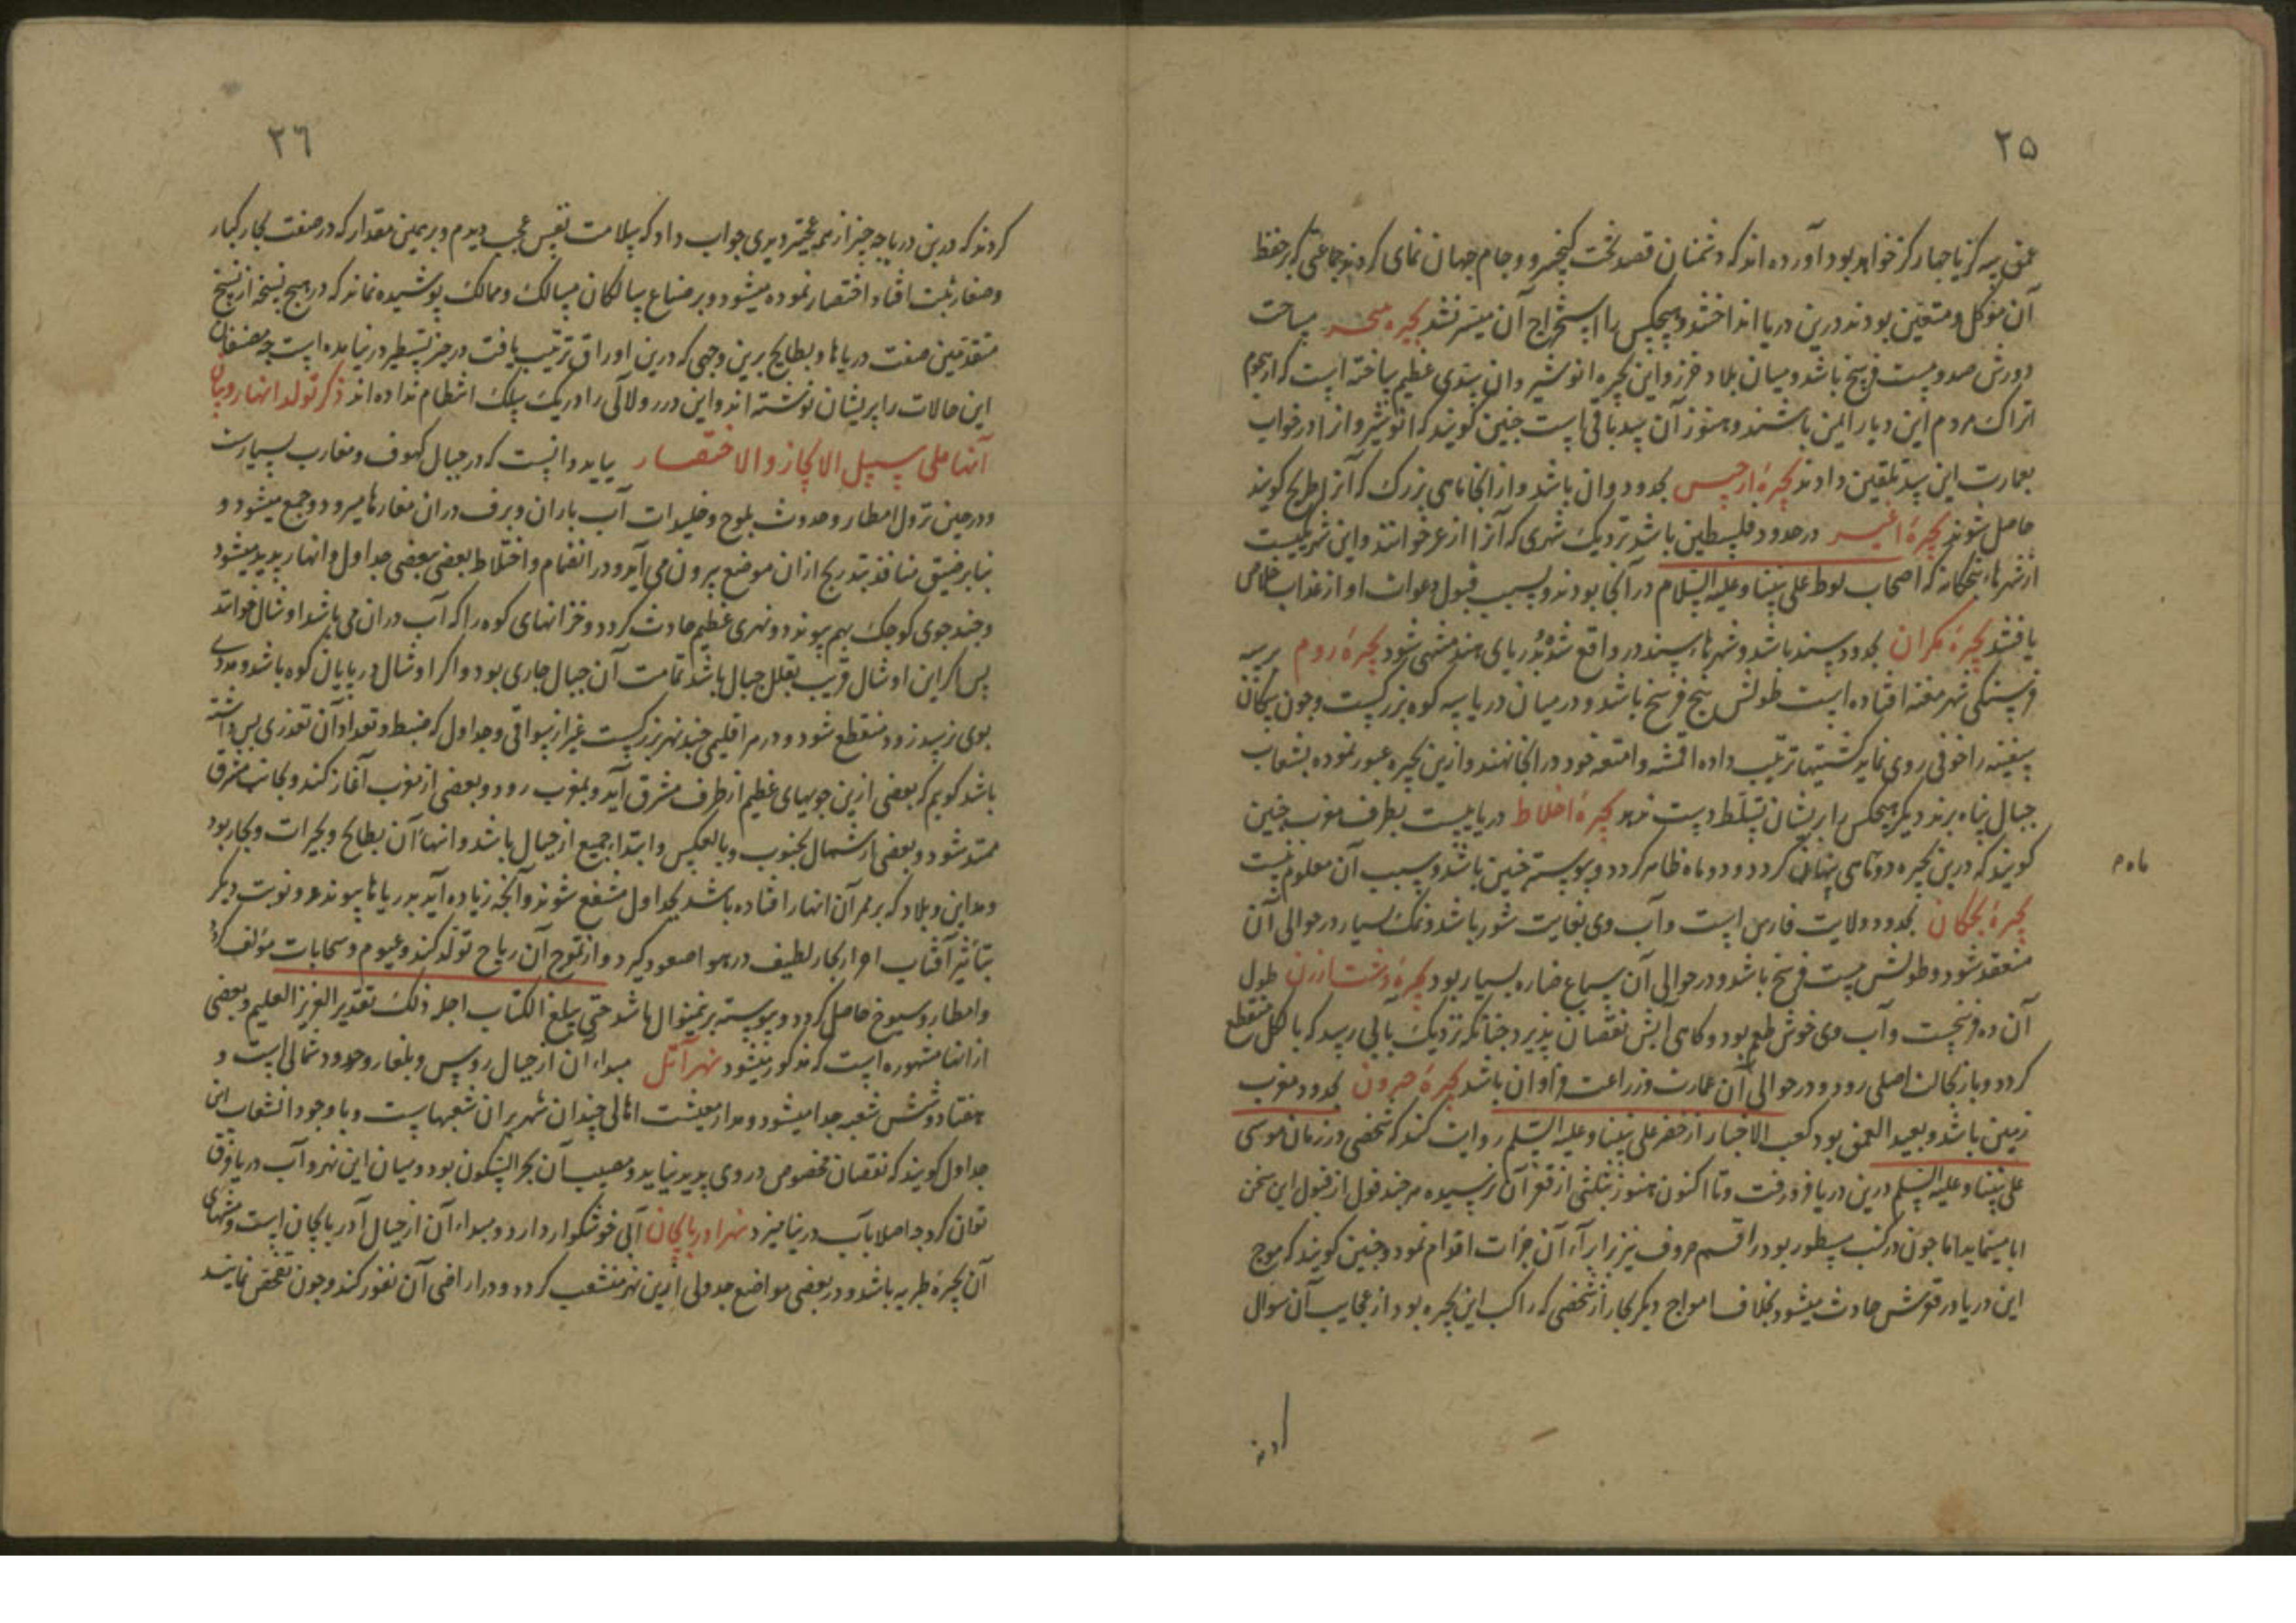 ٢٥
عمق سه کز یا چهار کز خواهد بود آورده اند که دشمنان قصد تخت کیخسرو و جام جهان نمای کردند جماعتی که بر حفظ
آن موکل و متعین بودند درین دریا انداختند و هیچکس را استخراج آن میسر نشد بحیره خزر مساحت
دورش صد و بیست فرسخ باشد و میان بلاد خزر و این بحیره انوشیروان سدی عظیم ساخته است که از هجوم
اتراک مردم این دیار ایمن باشند و هنوز آن سد باقی است چنین کویند که انوشیروانرا در خواب
بعمارت این سد تلقین دادند بحیرهٔ ارجیس بحدود وان باشد و از آنجا ماهی بزرک که آنرا طریخ کویند
حاصل شوند بحیرهٔ در حدود فلسطین باشد نزدیک شهری که آنرا ازغر خوانند و این شهریست
از شهرهاء پنجکانه که اصحاب لوط علی نبینا و علیه السلام در آنجا بودند و بسبب قبول دعوات او از عذاب خلاص
یافتند بحیرهٔ مکران بحدود سند باشد و شهرهاء سند در و واقع شده بدریای هند منتهی شود بحیرهٔ روم بر سه
فرسنکی شهر افتاده است طولش پنج فرسخ باشد و در میان دریا سه کوه بزرکست و چون سکان
سفینه را خوفی روی نماید کشتیها ترتیب داده اقمشه و امتعه خود در آنجا نهند و ازین بحیره عبور نموده بشعاب
جبال پناه برند دیکر هیچکس را بر ایشان تسلط دست ندهد بحیرهٔ اخلاط دریاییست بطرف مغرب چنین
کویند که درین بحیره دو ماهی پنهان کردد و دو ماه ظاهر کردد و پیوسته چنین باشد و سبب آن معلوم نیست
ماه م
بحیرهٔ بحکان بحدود ولایت فارس است و آب وی بغایت شور باشد و نمک بسیار در حوالی آن
منعقد شود و طولش بیست فرسخ باشد و در حوالی آن سباع ضاره بسیار بود بحیرهٔ دشت ارزن طول
آن ده فرسخست و آب وی خوش طعم بود و کاهی آبش نقصان پذیرد چنانکه نزدیک بآن رسد که بالکل منقطع
کردد و باز بحالت اصلی رود و در حوالی آن عمارت و زراعت فراوان باشد بحیرهٔ جیرون بحدود مغرب
زمین باشد و بعید العمق بود کعب الاخبار از خضر علی نبینا و علیه السلم روایت کند که شخصی در زمان موسی
علی نبینا و علیه السلم درین دریا فرو رفت و تا اکنون هنوز بثلثی از قعر آن نرسیده هر چند عقول از قبول این سخن
ابا مینماید اما چون در کتب مسطور بود راقم حروف نیز بر ایراد آن جرات اقدام نمود و چنین کویند که موج
این دریا در قعرش حادث میشود بخلاف امواج دیکر بحار از شخصی که راکب این بحیره بود از عجایب آن سوال
کردند
٢٦
کردند که درین دریاچه چیز از همه عجیبتر دیدی جواب داد که سلامت نفس عجب دیدم و بر همین مقدار که در صفت بحار کبار
و صغار ثبت افتاد اختصار نموده میشود و بر ضماع سالکان مسالک و ممالک پوشیده نماند که در هیچ نسخه از نسخ
متقدمین صفت دریاها و بطایح برین وجهی که درین اوراق ترتیب یافت در حیز تسطیر در نیامده است چه مصنفان
این حالات را پریشان نوشته اند و این درر و لالی را در یک سلک انتظام نداده اند ذکر تولد انهار و بیان
آنها علی سبیل الایجاز والاختصار بباید دانست که در جبال کهوف و مغارب بسیارست
و در حین نزول امطار و حدوث ثلوج و جلیدات آب باران و برف در آن مغارها میرود و جمع میشود و
بنا بر ضیق منافذ بتدریج از آن موضع بیرون می آید و در انضمام و اختلاط بعضی ببعضی جداول و انهار پدید میشود
و چند جوی کوچک بهم پیوندد و نهری عظیم حادث کردد و خزانهای کوه را که آب در آن می باشد اوشال خوانند
پس اکر این اوشال قریب بقلل جبال باشد تمامت آن جبال جاری بود و اکر اوشال در پایان کوه باشد و مددی
بوی نرسد زود منقطع شود و در هر اقلیمی چند نهر بزرکست غیر از سواقی و جداول که ضبط و تعداد آن تعذری بس داشته
باشد کویم که بعضی ازین جویهای عظیم از طرف مشرق آید و بمغرب رود و بعضی از مغرب آغاز کند و بجانب مشرق
ممتد شود و بعضی از شمال بجنوب و بالعکس و ابتداء جمیع از جبال باشد و انتهاء آن بطایح و بحیرات و بحار بود
و مداین و بلاد که بر ممر آن انهار افتاده باشد بجداول منتفع شوند و آنچه زیاده آید بدریاها پیوندد و نوبت دیکر
بتأثیر آفتاب اجزاء بخار لطیف در هوا صعود کیرد و از تموج آن ریاح تولد کند و غیوم و سحابات مؤلف کردد
و امطار و سیوخ حاصل کردد و پیوسته برینمنوال باشد حتی یبلغ الکتاب اجله ذلک تقدیر العزیز العلیم و بعضی
از انها مشهوره است که مذکور میشود نهر آتل مبداء آن از جبال روس و بلغار و حدود شمالی است و
هفتاد و شش شعبه جدا میشود و مدار معیشت اهالی چندان شهر بر آن شعبهاست و با وجود انشعاب این
جداول کویند که نقصان مخصوص در وی پدید نیاید و مصب آن بحر السکون بود و میان این نهر و آب دریا فرق
توان کرد چه اصلا بآب در نیامیزد نهر آذربایجان آبی خوشکوار دارد و مبداء آن از جبال آذربایجان است و منتهای
آن بحیرهٔ طبریه باشد و در بعضی مواضع جدولی ازین نهر منشعب کردد و در اراضی آن نفوذ کند و چون تفحص نمایند